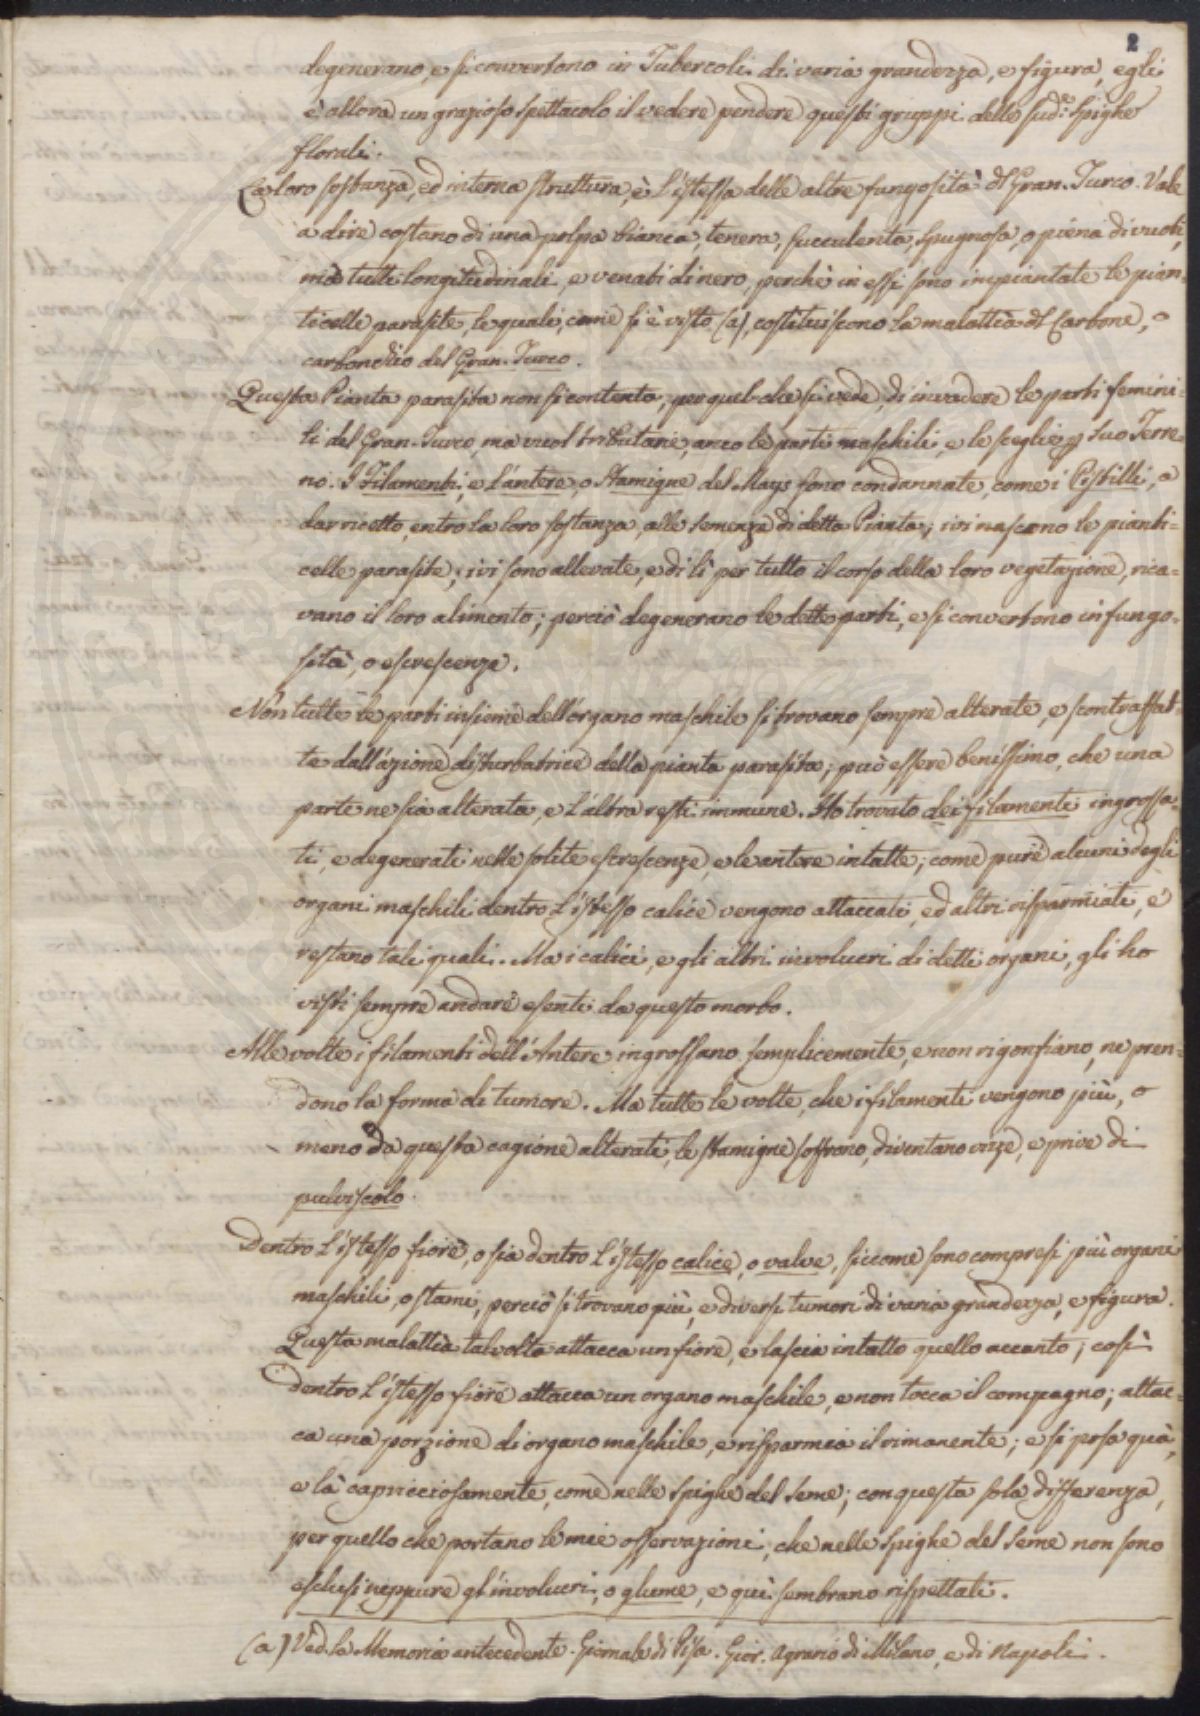 2
degenerano, e si convertono in Tubercoli di varia grandezza, e figura, egli
è allora un grazioso spettacolo il vedere pendere questi gruppi delle sud.e Spighe
florali.
La loro sostanza, ed interna struttura, è l'istessa delle altre fungosità dl Gran-Turco. Vale
a dire costano di una polpa bianca, tenera, succulenta, spugnosa, o piena di vuoti,
mà tutti longitudinali, e venati di nero, perchè in essi sono impiantate le pian-
ticelle parasite, le quali, come si è visto (a), costituiscono la malattia dl Carbone, o
carbonchio del Gran-Turco.
Questa Pianta parasita non si contenta, per quel che si vede, di invadere le parti femini-
li del Gran-Turco, ma vuol tributarie, anco le parti maschili, e le sceglie p suo Terre-
no. I Filamenti, e l'antere, o Stamigne del Mays sono condannate, come i Pistilli, a
dar ricetto, entro la loro sostanza, alle semenze di detta Pianta; ivi nascono le pianti=
celle parasite; ivi sono allevate, e di lì per tutto il corso della loro vegetazione, rica=
vano il loro alimento; perciò degenerano le dette parti, e si convertono in fungo-
sità, o escrescenze.
Non tutte le parti insieme dell'organo maschile si trovano sempre alterate, e scontraffat-
te dall'azione disturbatrice della pianta parasita; può essere benissimo, che una
parte ne sia alterata, e l'altra resti immune. Ho trovato dei filamenti ingrossa-
ti, e degenerati nelle solite escrescenze, e le antere intatte; come pure alcuni degli
organi maschili dentro l'istesso calice vengono attaccati, ed altri risparmiati, e
restano tali quali. Ma i calici, e gli altri involucri di detti organi, gli ho
visti sempre andare esenti da questo morbo.
Alle volte i filamenti dell'Antere ingrossano semplicemente, e non rigonfiano, ne pren-
dono la forma di tumore. Ma tutte le volte, che i filamenti vengono più, o
meno da questa cagione alterati, le stamigne soffrono, diventano vizze, e prive di
pulviscolo.
Dentro l'istesso fiore, o sia dentro l'istesso calice, o valve, siccome sono compresi più organi
maschili, o stami, perciò si trovano più, e diversi tumori di varia grandezza, e figura.
Questa malattia talvolta attacca un fiore, e lascia intatto quello accanto; così
dentro l'istesso fiore attacca un organo maschile, e non tocca il compagno; attac-
ca una porzione di organo maschile, e risparmia il rimanente; e si posa quà,
e là capricciosamente, come nelle spighe del seme; con questa sola differenza,
per quello che portano le mie osservazioni, che nelle spighe del seme non sono
esclusi neppure gl'involucri, o glume, e quì sembrano rispettati.
(a) Ved. la Memoria antecedente. Giornale di Pisa. Gior. Agrario di Milano, e di Napoli.